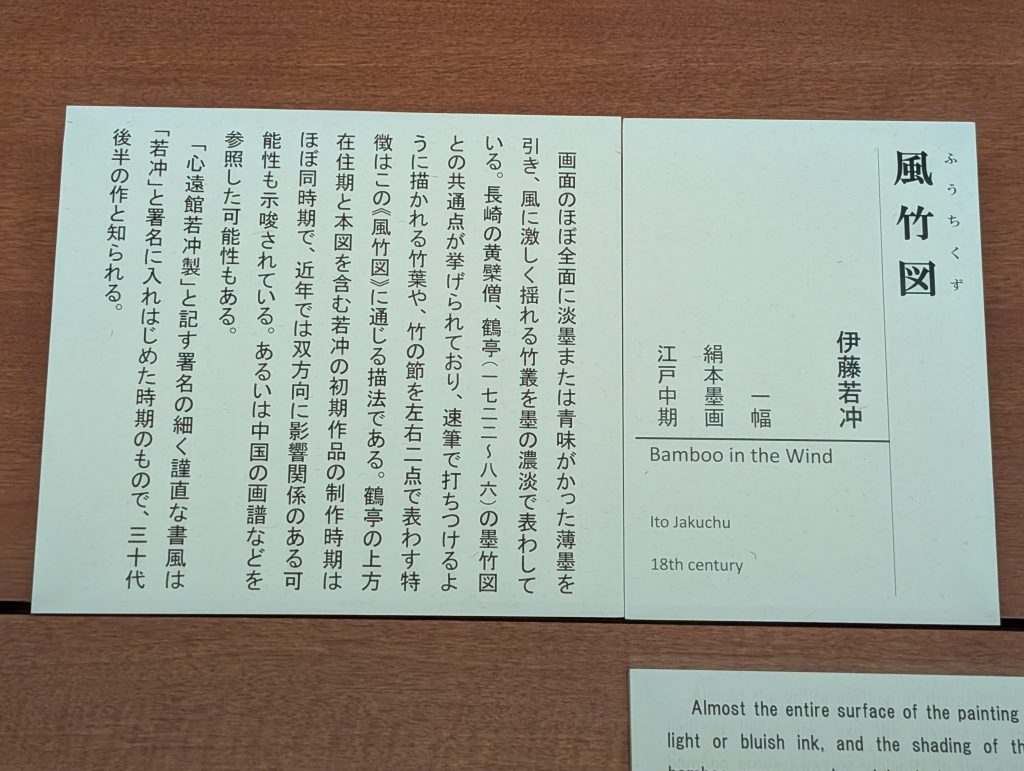 風竹図
ふうちくず
伊藤若冲
一幅
絹本墨画
江戸中期
Bamboo in the Wind
Ito Jakuchu
18th century
画面のほぼ全面に淡墨または青味がかった薄墨を
引き、風に激しく揺れる竹叢を墨の濃淡で表わして
いる。長崎の黄檗僧、鶴亭(一七二二〜八六)の墨竹図
との共通点が挙げられており、速筆で打ちつけるよ
うに描かれる竹葉や、竹の節を左右二点で表わす特
徴はこの《風竹図》に通じる描法である。鶴亭の上方
在住期と本図を含む若冲の初期作品の制作時期は
ほぼ同時期で、近年では双方向に影響関係のある可
能性も示唆されている。あるいは中国の画譜などを
参照した可能性もある。
「心遠館若冲製」と記す署名の細く謹直な書風は
「若冲」と署名に入れはじめた時期のもので、三十代
後半の作と知られる。
Almost the entire surface of the painting
light or bluish ink, and the shading of th